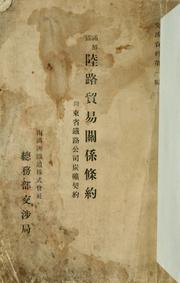 滿鮮
陸路貿易關係條約
附東省鐵路公司炭礦契約
南滿洲鐵道株式會社
總務部交涉局